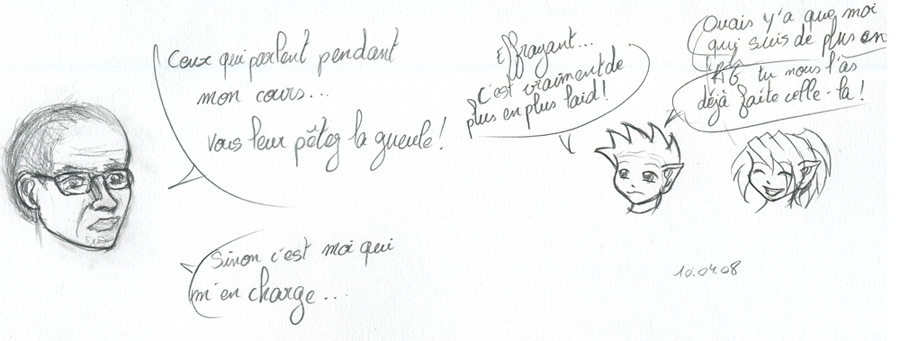 Ceux qui parlent pendant
mon cours...
vous leur pêtez la gueule !
Sinon c'est moi qui
m'en charge...
Effrayant...
C'est vraiment de
plus en plus laid !
Ouais y'a que moi
qui suis de plus en
plus
AG tu nous l'as
déjà faite celle-là !
10.04.08